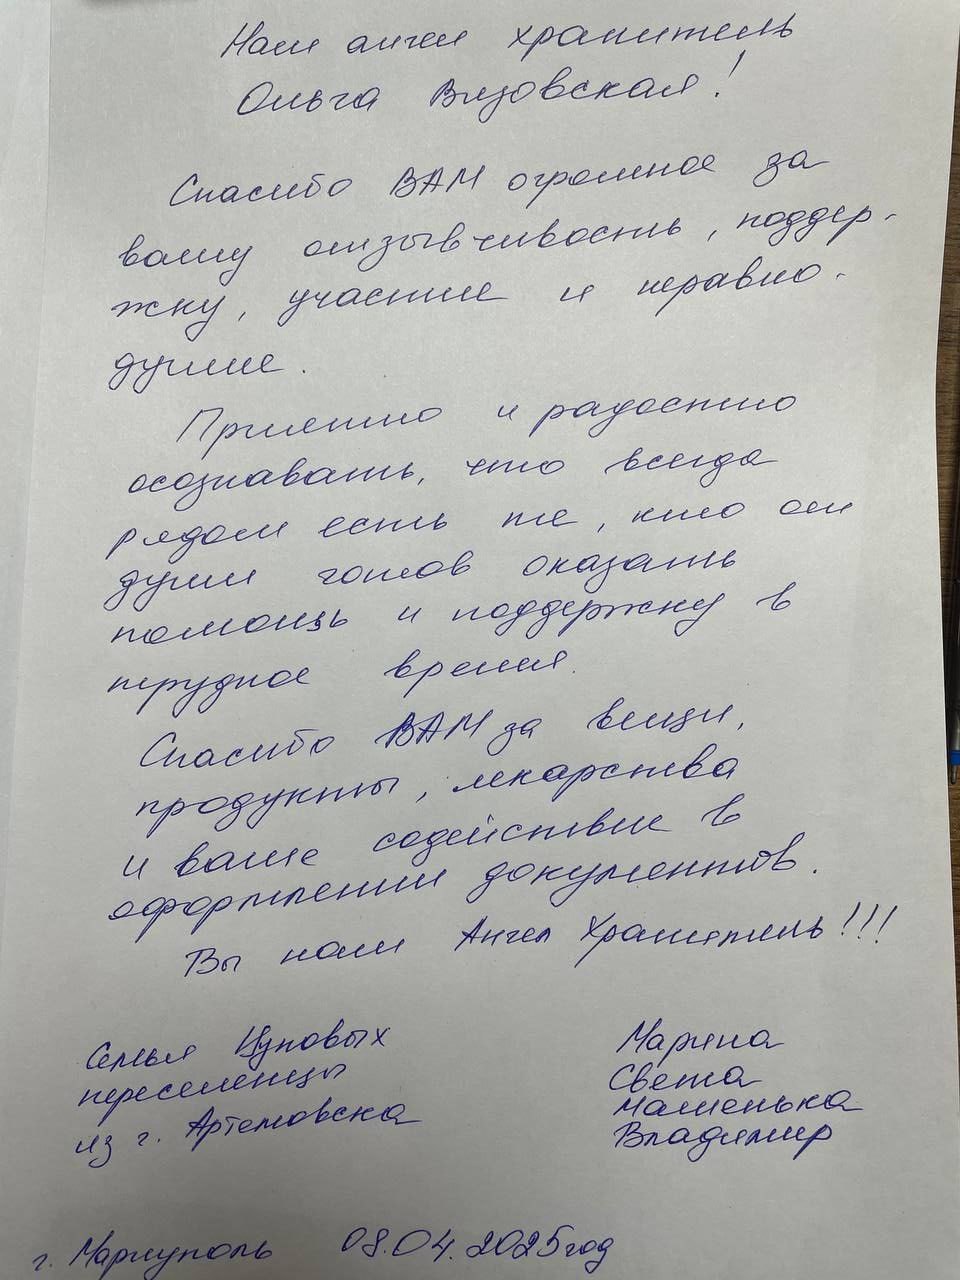 Наш ангел хранитель
Ольга Вязовская!
Спасибо ВАМ огромное за
вашу отзывчивость, поддер-
жку, участие и неравно-
душие.
Приятно и радостно
осознавать, что всегда
рядом есть те, кто от
души готов оказать
помощь и поддержку в
трудное время.
Спасибо ВАМ за вещи,
продукты, лекарства
и ваше содействие в
оформлении документов.
Вы наш Ангел Хранитель!!!
Семья Цуповых
переселенцы
из г. Артемовска
Марина
Света
Машенька
Владимир
г. Мариуполь 08.04.2025год